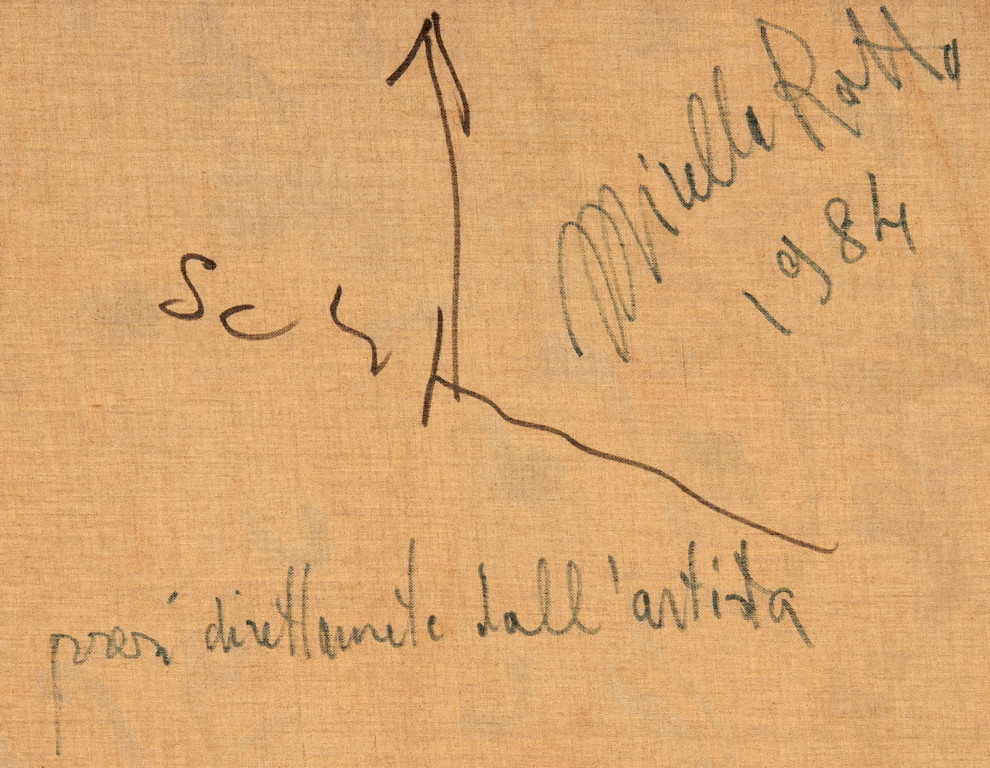 Mirella Ratto
1984
presi direttamente dall'artista